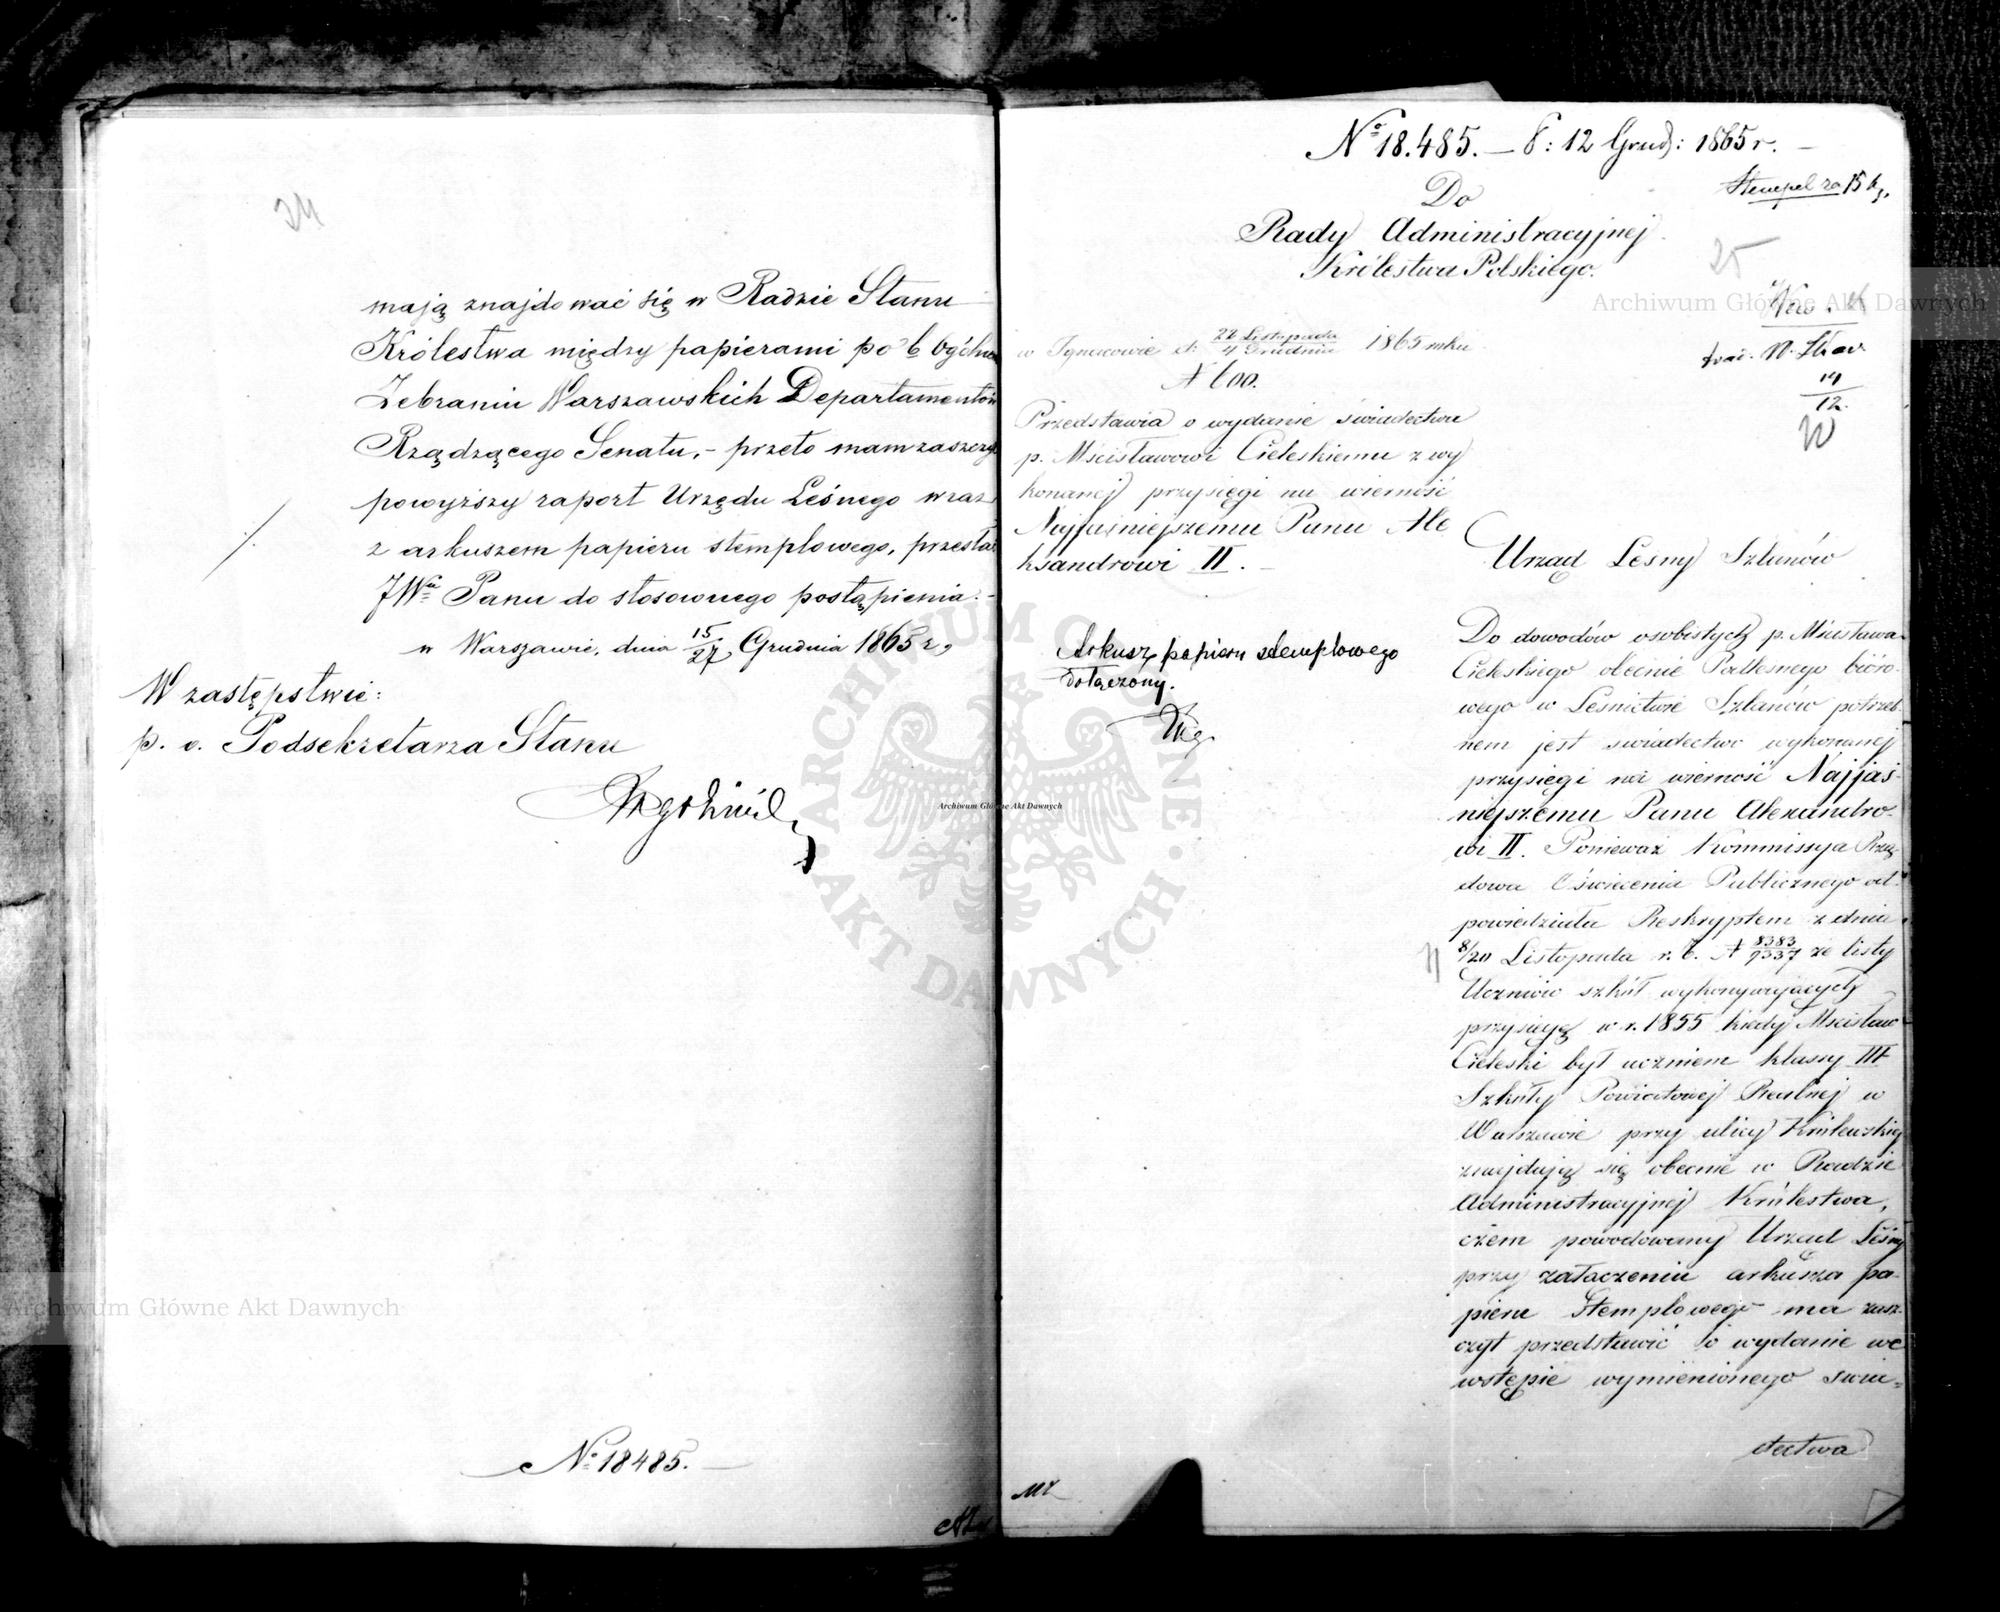 24
mają znajdować się w Radzie Stanu
Królestwa między papierami po b. Ogólnem
Zebraniu Warszawskich Departamentów
Rządzącego Senatu, - przeto mam zaszczyt
powyższy raport Urzędu Leśnego wraz
z arkuszem papieru stemplowego, przesłać
JWu Panu do stosownego postąpienia. -
w Warszawie, dnia 15/27 Grudnia 1865 r.
W zastępstwie:
p. o. Podsekretarza Stanu
No 18485.
No 18.485. - 12 Grud: 1865 r. -
Stempel za 15 k.
Do
Rady Administracyjnej
Królestwa Polskiego.
25
w Ignacowie d. 22 Listopada / 4 Grudnia 1865 roku
14/12.
N 600.
Przedstawia o wydanie świadectwa
p. Mścisławowi Cieleskiemu z wy
konanej przysięgi na wierność
Najjaśniejszemu Panu Ale
ksandrowi II. -
Arkusz papieru stemplowego
dołączony.
Urząd Leśny Szłanów
Do dowodów osobistych p. Mścisława
Cieleskiego obecnie Podleśnego bióro-
wego w Leśnictwie Szłanów potrzeb-
nem jest świadectwo wykonanej
przysięgi na wierność Najjaś-
niejszemu Panu Alexandro-
wi II. Ponieważ Kommissya Rzą-
dowa Oświecenia Publicznego od-
powiedziała Reskryptem z dnia
8/20 Listopada r. b. N 8383/9337 że listy
Uczniów szkół wykonywających
przysięgę w r. 1855 kiedy Mścisław
Cieleski był uczniem klassy III
Szkoły Powiatowej Realnej w
Warszawie przy ulicy Królewskiej
znajdują się obecnie w Radzie
Administracyjnej Królestwa,
czem powodowany Urząd Leśny
przy załączeniu arkusza pa-
pieru stemplowego ma zasz-
czyt przedstawić o wydanie we
wstępie wymienionego świa-
dectwa
Archiwum Główne Akt Dawnych
Archiwum Główne Akt Dawnych
Archiwum Główne Akt Dawnych
ARCHIWUM GŁÓWNE AKT DAWNYCH